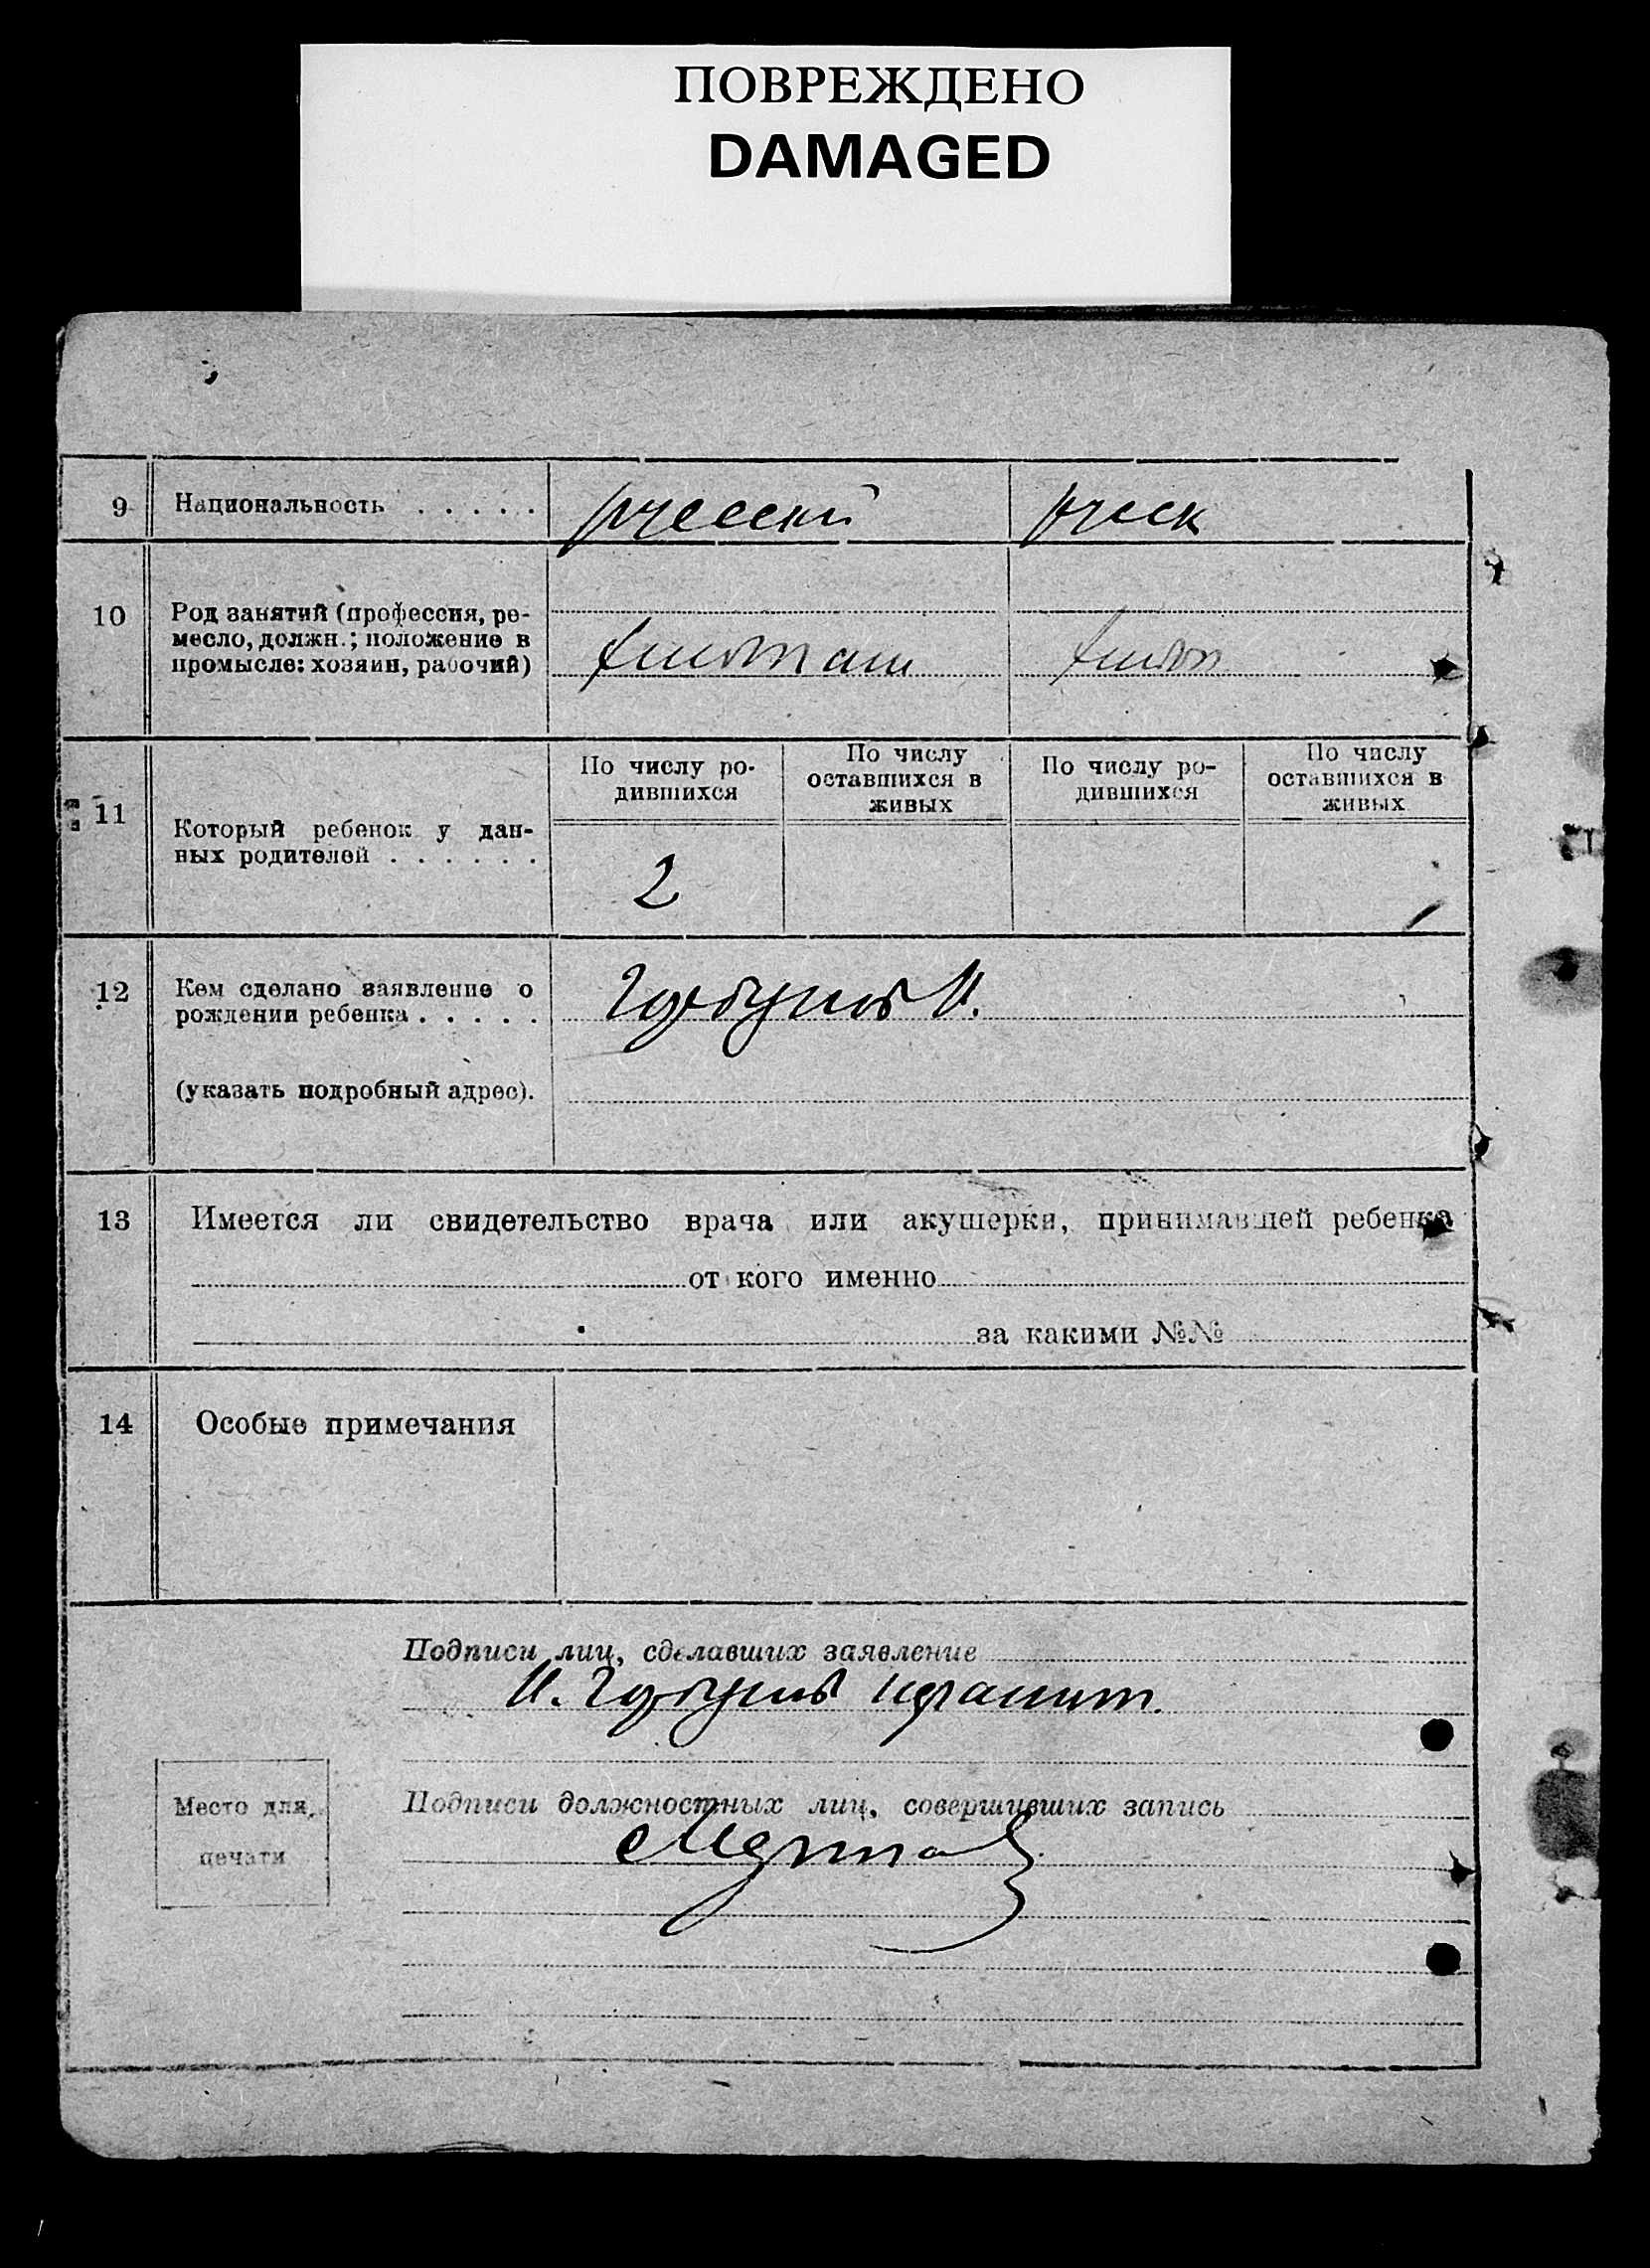 ПОВРЕЖДЕНО
DAMAGED
9 Национальность . . . . . русский руск
10 Род занятий (профессия, ре-
месло, должн.; положение в
промысле: хозяин, рабочий)
11 Который ребенок у дан-
ных родителей . . . . . .
По числу ро-
дившихся
По числу
оставшихся в
живых
По числу ро-
дившихся
По числу
оставшихся в
живых
2
12 Кем сделано заявление о
рождении ребенка . . . . . Горбунов И.
(указать подробный адрес).
13 Имеется ли свидетельство врача или акушерки, принимавшей ребенка
от кого именно
за какими №№
14 Особые примечания
Подписи лиц, сделавших заявление
И. Горбунов
Место для
печати
Подписи должностных лиц, совершивших запись